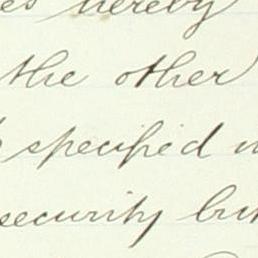 es hereby
the other
specified
security but